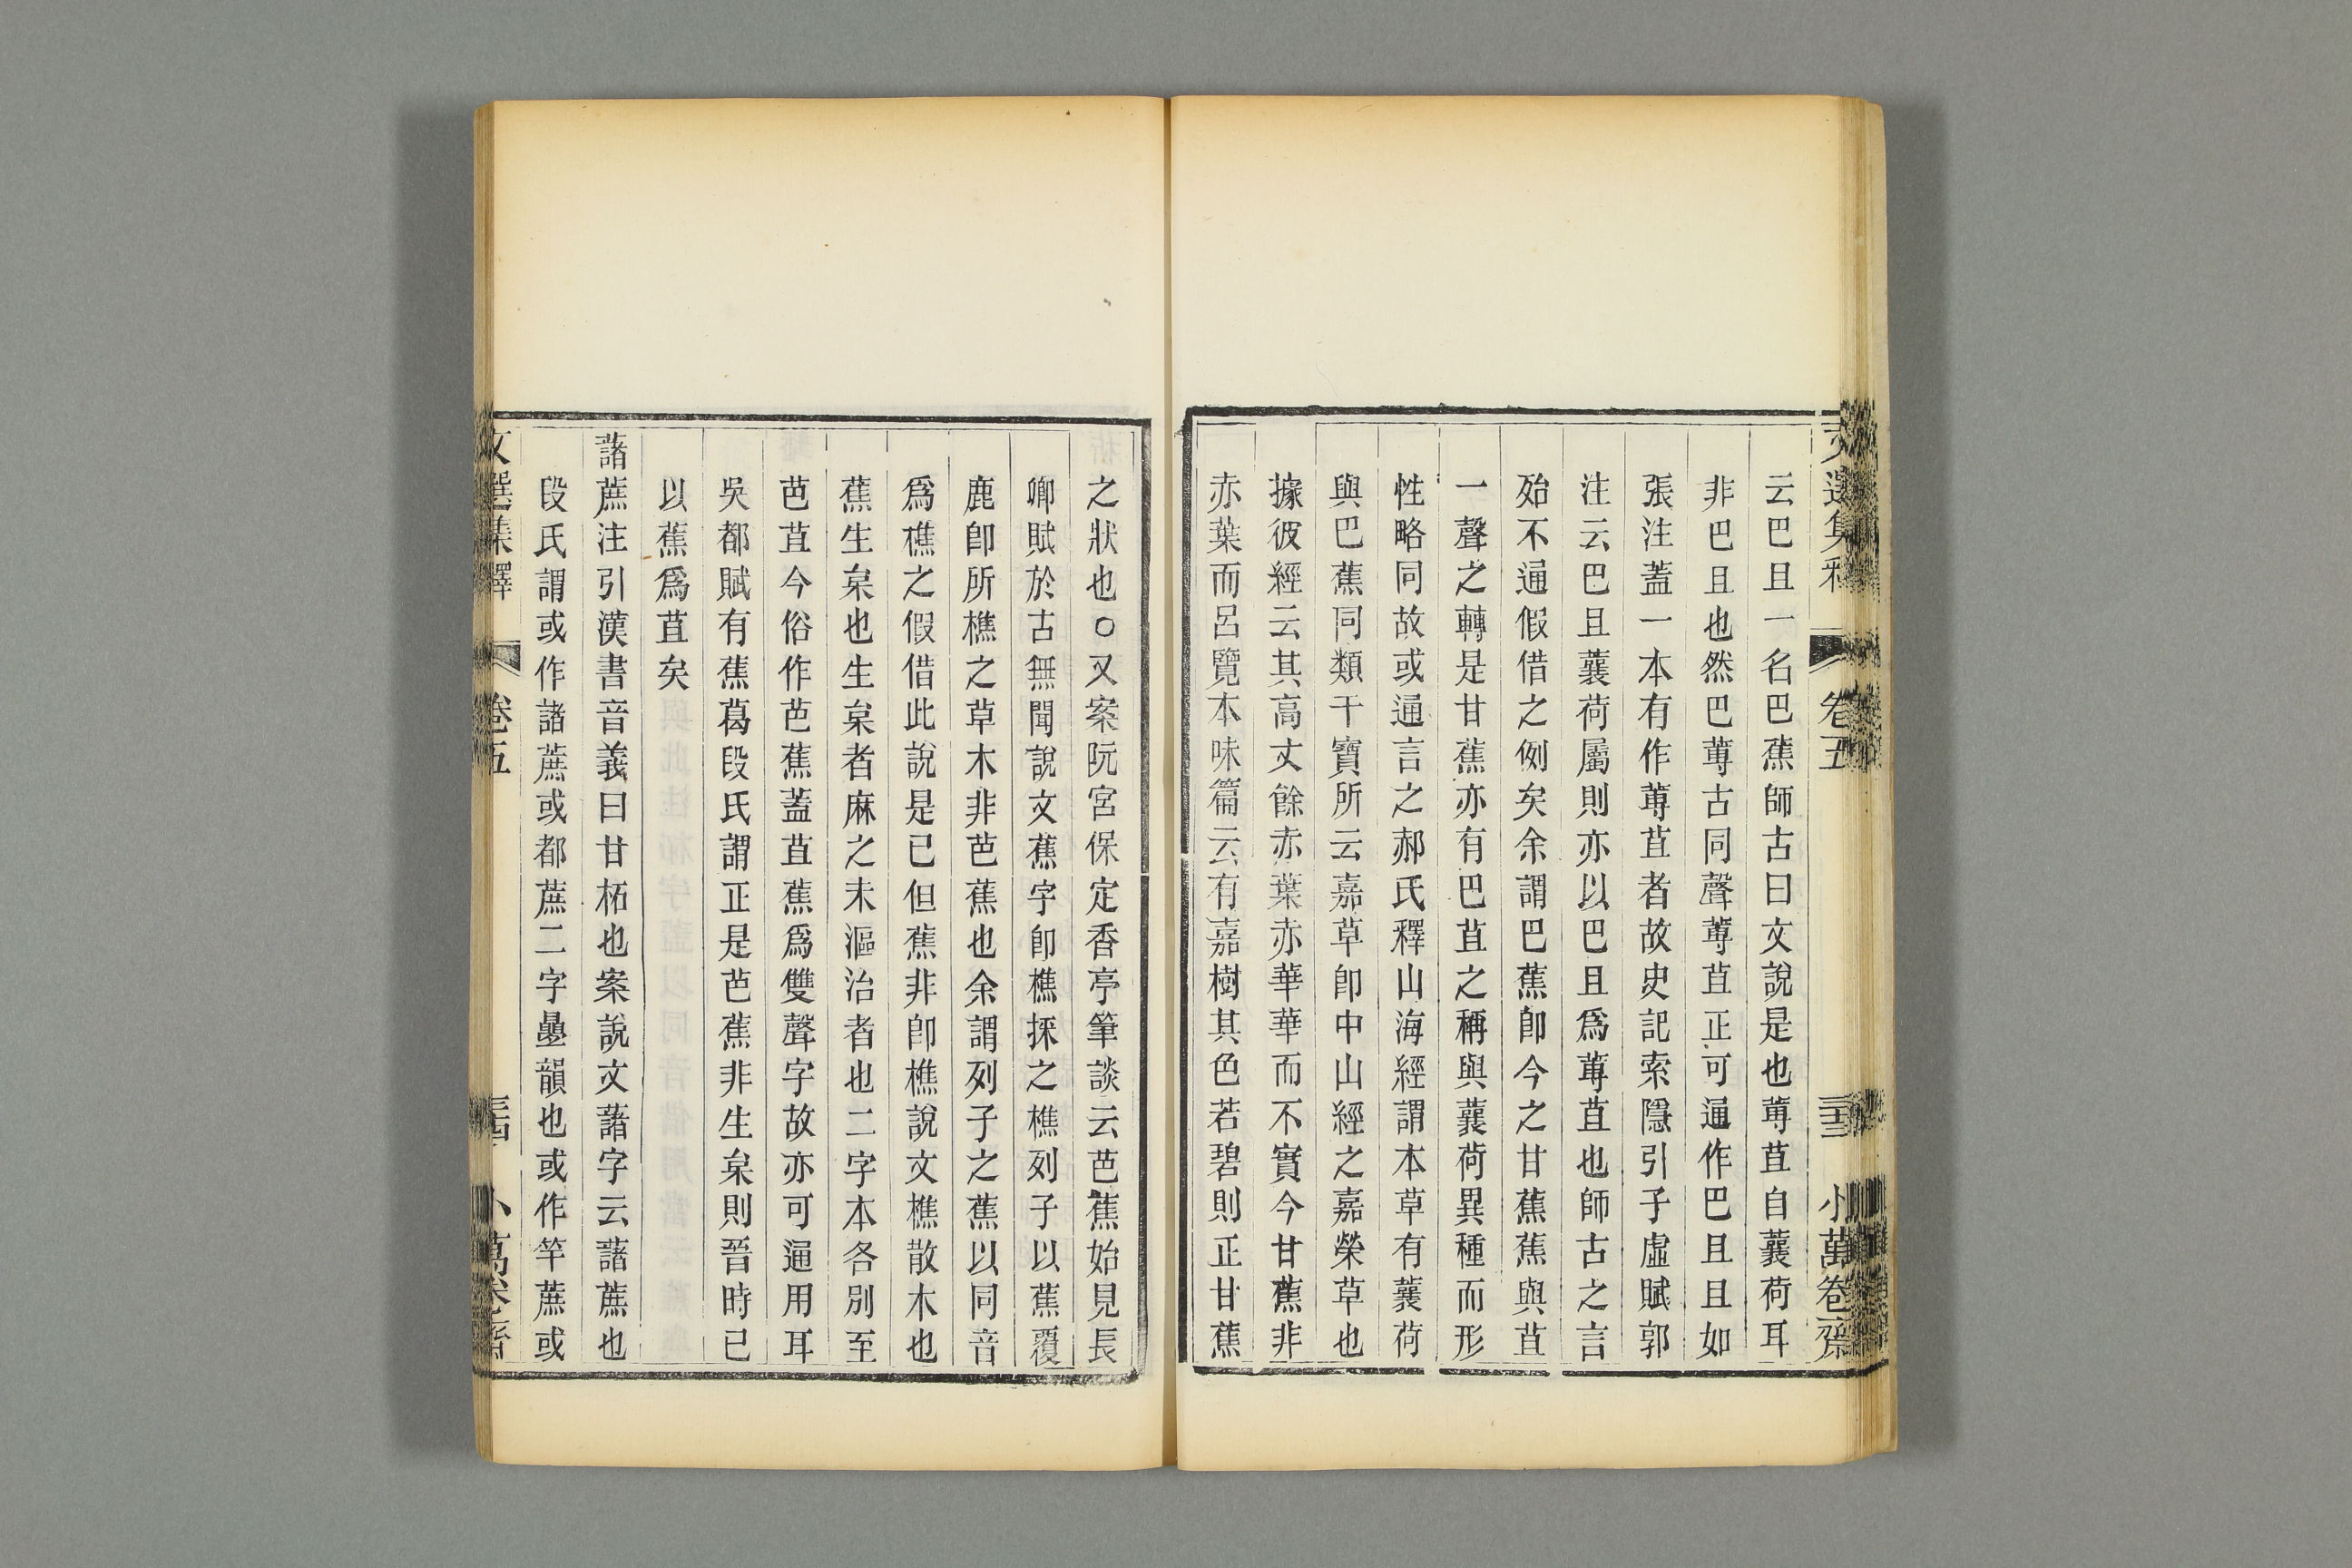 文選集釋 卷五 三十三 小萬卷齋
云巴且一名巴蕉師古曰文說是也蓴苴自蘘荷耳
非巴且也然巴蓴古同聲蓴苴正可通作巴且且如
張注蓋一本有作蓴苴者故史記索隱引子虛賦郭
注云巴且蘘荷屬則亦以巴且爲蓴苴也師古之言
殆不通假借之例矣余謂巴蕉卽今之甘蕉蕉與苴
一聲之轉是甘蕉亦有巴苴之稱與蘘荷異種而形
性略同故或通言之郝氏釋山海經謂本草有蘘荷
與巴蕉同類干寶所云嘉草卽中山經之嘉榮草也
據彼經云其高丈餘赤葉赤華華而不實今甘蕉非
赤葉而呂覽本味篇云有嘉樹其色若碧則正甘蕉
之狀也○又案阮宮保定香亭筆談云芭蕉始見長
卿賦於古無聞說文蕉字卽樵採之樵列子以蕉覆
鹿卽所樵之草木非芭蕉也余謂列子之蕉以同音
爲樵之假借此說是已但蕉非卽樵說文樵散木也
蕉生枲也生枲者麻之未漚治者也二字本各別至
芭苴今俗作芭蕉蓋苴蕉爲雙聲字故亦可通用耳
吳都賦有蕉葛段氏謂正是芭蕉非生枲則晉時已
以蕉爲苴矣
藷蔗注引漢書音義曰甘柘也案說文藷字云藷蔗也
段氏謂或作諸蔗或都蔗二字疊韻也或作竿蔗或
文選集釋 卷五 三十四 小萬卷齋